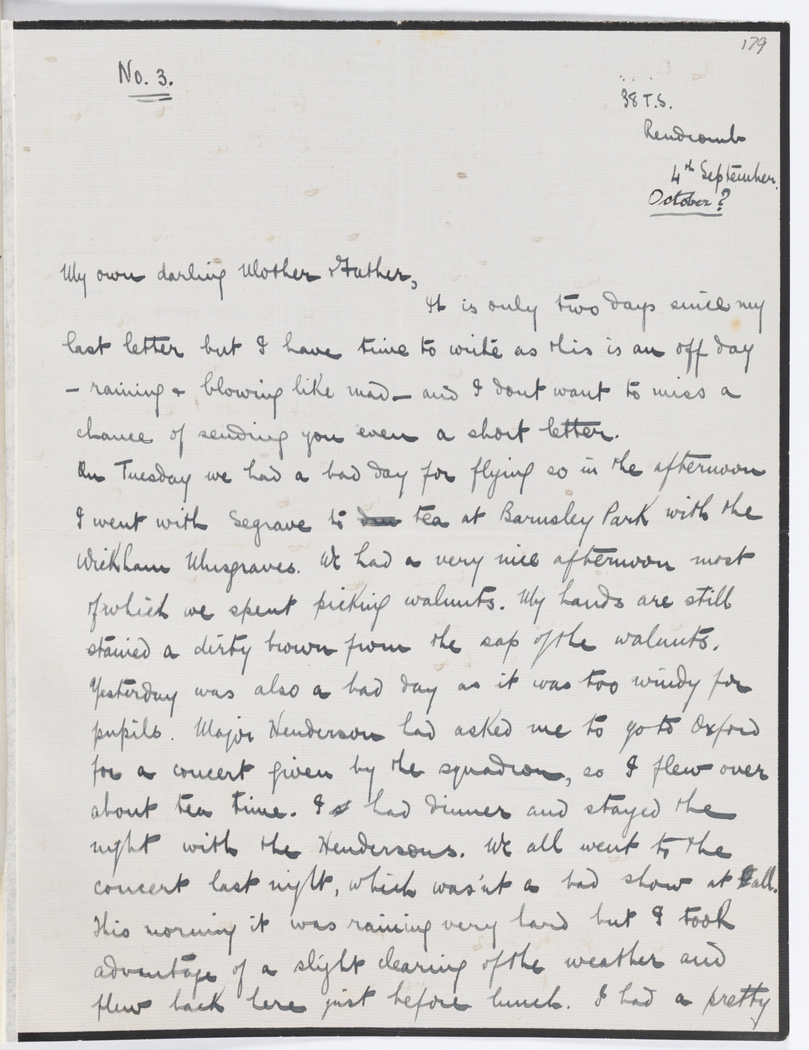 179
No. 3.
38 T.S.
Rendcomb
4th September.
October?
My own darling Mother & Father,
It is only two days since my
last letter but I have time to write as this is an off day
– raining & blowing like mad – and I dont want to miss a
chance of sending you even a short letter.
On Tuesday we had a bad day for flying so in the afternoon
I went with Segrave to tea at Barnsley Park with the
Wickham Musgraves. We had a very nice afternoon most
of which we spent picking walnuts. My hands are still
stained a dirty brown from the sap of the walnuts.
Yesterday was also a bad day as it was too windy for
pupils. Major Henderson had asked me to go to Oxford
for a concert given by the squadron, so I flew over
about tea time. I had dinner and stayed the
night with the Hendersons. We all went to the
concert last night, which was'nt a bad show at all.
This morning it was raining very hard but I took
advantage of a slight clearing of the weather and
flew back here just before lunch. I had a pretty